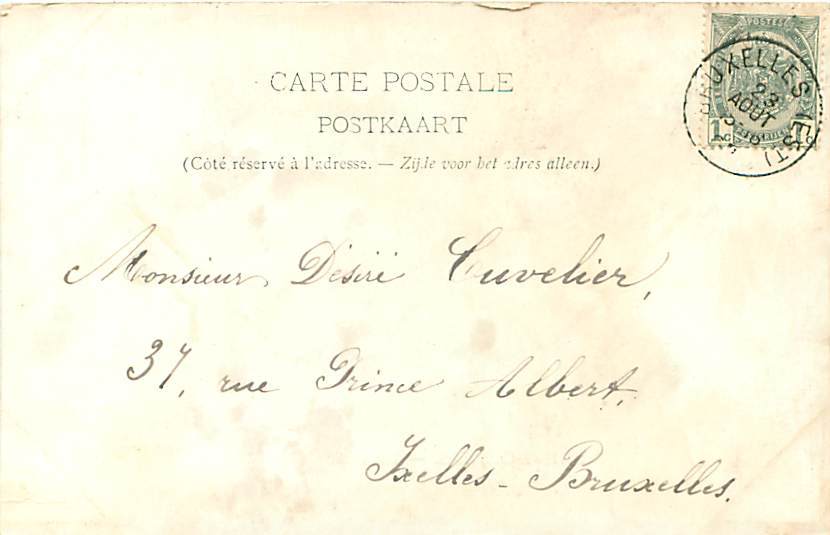 CARTE POSTALE
POSTKAART
(Côté réservé à l'adresse. — Zijde voor het adres alleen.)
POSTES
1c 1c
BRUXELLES (EST)
23
AOUT
Monsieur Désiré Cuvelier,
37, rue Prince Albert,
Ixelles - Bruxelles.